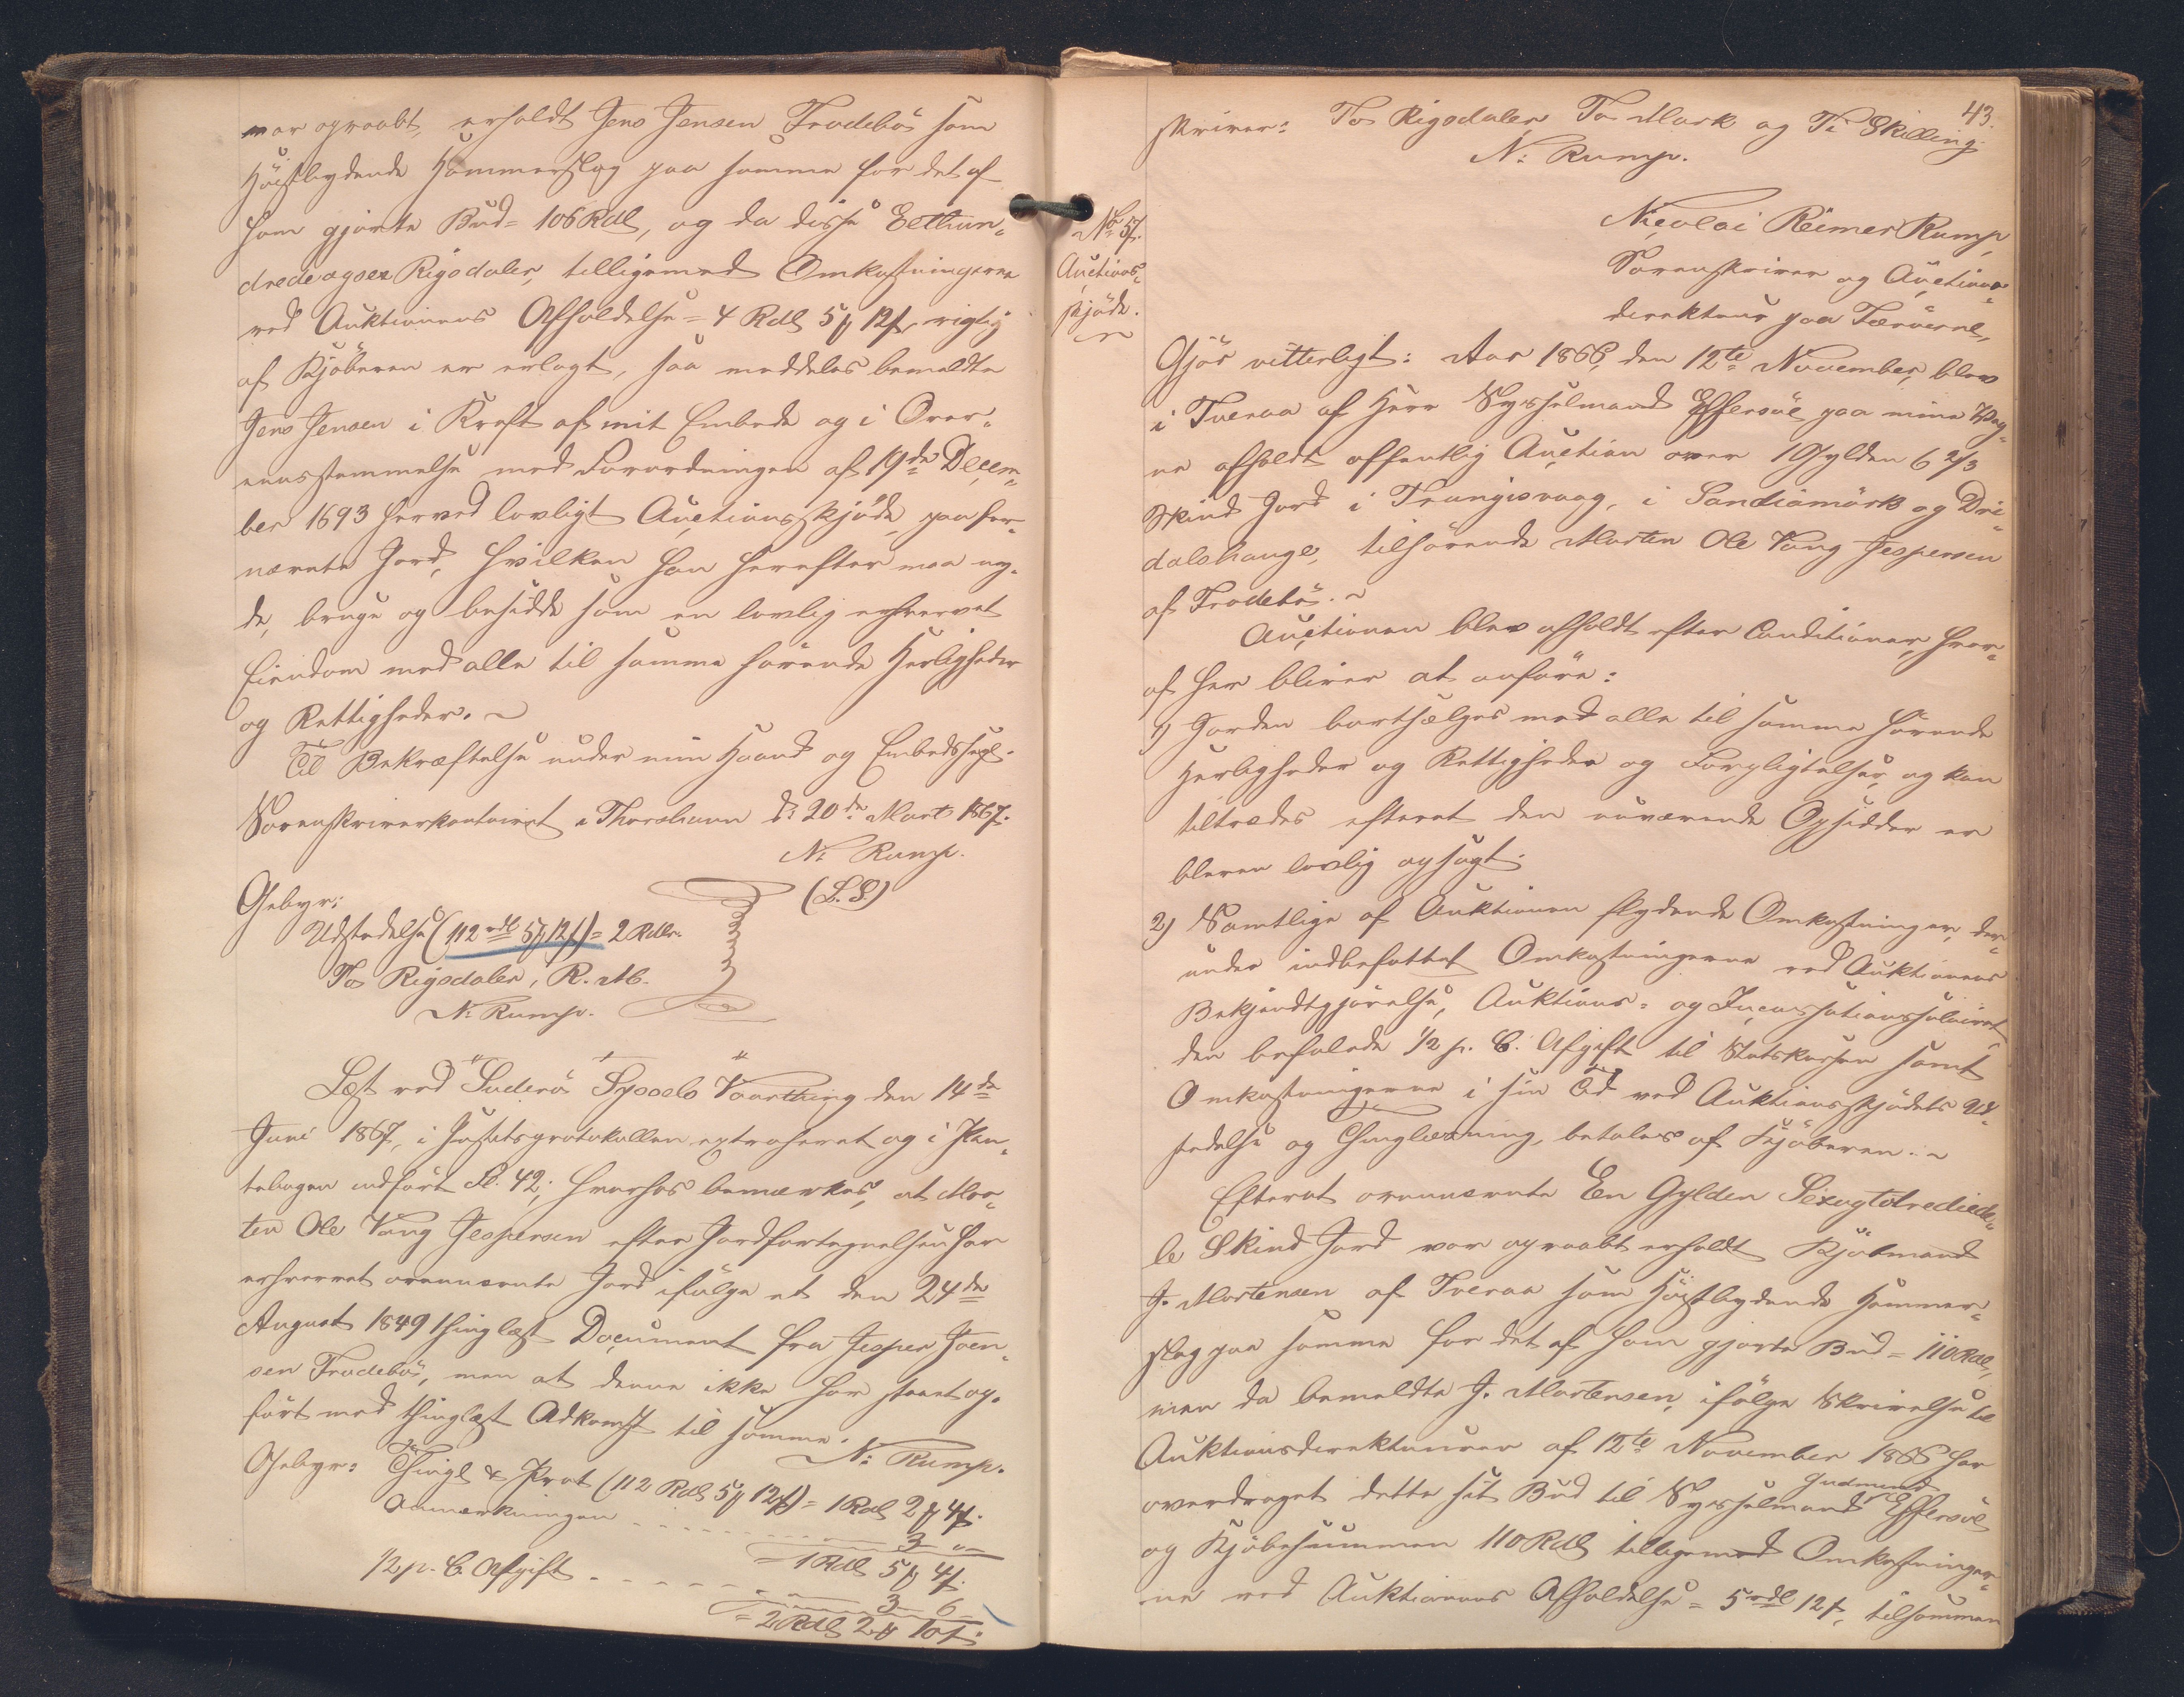 var opraabt, erholdt Jens Jensen Frodebö som
Höistbydende Hammerslag paa samme for det af
ham gjorte Bud = 106 Rdl, og da disse Eethun-
dredeogsex Rigsdaler, tilligemed Omkostningerne
ved Auktionens Afholdelse = 4 Rdl 5 Mk 12 s, rigtig
af Kjöberen er erlagt, saa meddeles bemeldte
Jens Jensen i Kraft af mit Embede og i Over-
eensstemmelse med Forordningen af 19de Decem-
ber 1693 herved lovligt Auctionsskjöde paa for-
nævnte Jord, hvilken han herefter maa ny-
de, bruge og besidde som en lovlig erhvervet
Eiendom med alle til samme hörende Herligheder
og Rettigheder. ~
Til Bekræftelse under min Haand og Embedssegl.
Sorenskriverkontoiret i Thorshavn d: 20de Marts 1867.
N: Rump.
(L. S.)
Gebyr:
Udstedelse (112 rdl 5 Mk 12 s) = 2 Rdlr.
To Rigsdaler, R. M.
N: Rump.
Læst ved Suderö Syssels Vaarthing den 14de
Juni 1867, i Justitsprotokollen extraheret og i Pan-
tebogen indfört Fl. 42; hvorhos bemærkes, at Mor-
ten Ole Vang Jespersen efter Jordfortegnelsen har
erhvervet ovennævnte Jord ifölge et den 24de
August 1849 thinglæst Document fra Jesper Joen-
sen Frodebö, men at denne ikke har staaet op-
fört med thinglæst Adkomst til samme.
N: Rump.
Gebyr: Thingl & Prot (112 Rdl 5 Mk 12 s) = 1 Rdl 2 Mk 4 s.
Anmærkningen - - - - - - - 3 "
= 1 Rdl 5 Mk 4 s.
1/2 p. C. Afgift - - - - - - - 3 6
= 2 Rdl 2 Mk 10 s.
43.
skriver: To Rigsdaler To Mark og Ti Skilling.
N: Rump.
No 57.
Auctions-
skjöde.
Nicolai Reimer Rump,
Sorenskriver og Auctions-
direkteur paa Færöerne,
Gjör vitterligt: Aar 1866, den 12te November, blev
i Tveraa af Herr Sysselmand Effersöe paa mine Veg-
ne afholdt offentlig Auction over 1 Gylden 6 2/3
Skind Jord i Trangisvaag, i Sandiamörk og Dri-
dalshauge, tilhörende Morten Ole Vang Jespersen
af Frodebö. ~
Auctionen blev afholdt efter Conditioner, hvor-
af her bliver at anföre:
1) Jorden bortsælges med alle til samme hörende
Herligheder og Rettigheder og Forpligtelser, og kan
tiltrædes efterat den nuværende Opsidder er
bleven lovlig opsagt.
2) Samtlige af Auktionen flydende Omkostninger, der-
under indbefattet Omkostningerne ved Auktionens
Bekjendtgjörelse, Auktions- og Incassationssalairet,
den befalede 1/2 p. C. Afgift til Statskassen samt
Omkostningerne i sin Tid ved Auktionsskjödets Ud-
stedelse og Thinglæsning, betales af Kjöberen. ~
Efterat ovennævnte Een Gylden Sexogtotrediede-
le Skind Jord var opraabt erholdt Kjöbmand
J. Mortensen af Tveraa som Höistbydende Hammer-
slag paa samme for det af ham gjorte Bud = 110 Rdl,
men da bemeldte J. Mortensen, ifölge Skrivelse til
Auktionsdirekteuren af 12te November 1866 har
overdraget dette sit Bud til Sysselmand Gudmund Effersöe
og Kjöbesummen 110 Rdl tilligemed Omkostninger-
ne ved Auktionens Afholdelse = 5 rdl 12 s, tilsammen